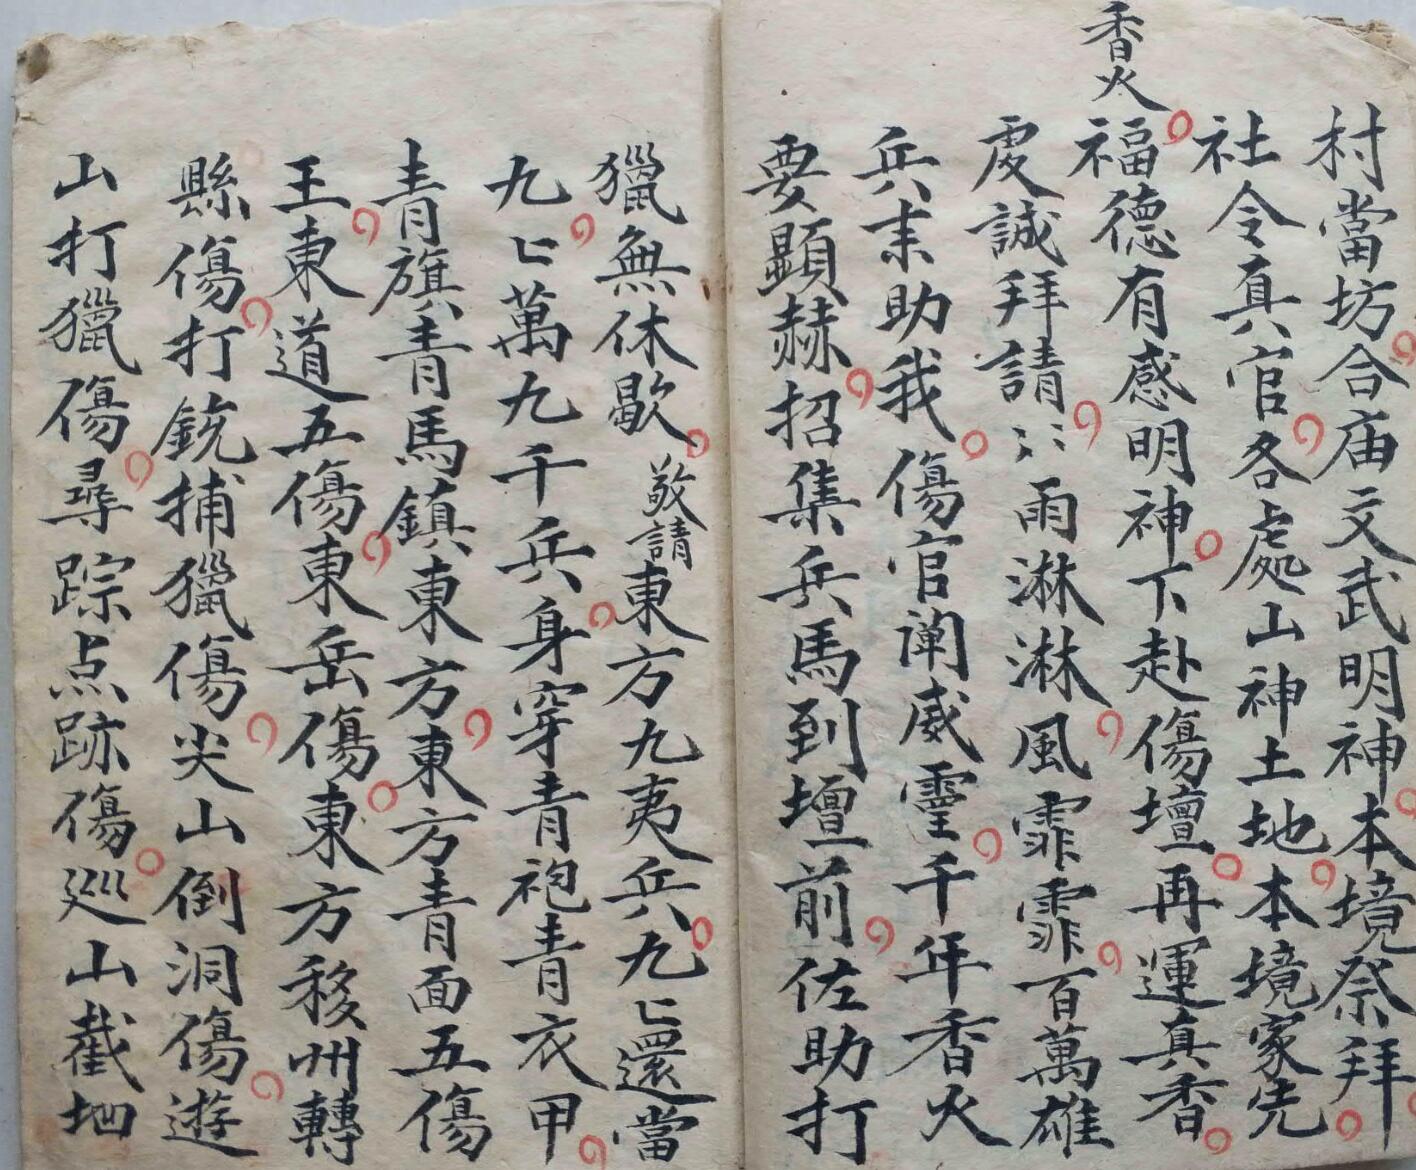 村當坊合庙文武明神本境祭拜
社令真官各處山神土地本境家先
香火
福德有感明神下赴傷壇再運真香
虔誠拜請〻雨淋淋風霏霏百萬雄
兵来助我傷官阐威靈千年香火
要顯赫招集兵馬到壇前佐助打
獵無休歇敬請東方九夷兵九〻還當
九〻萬九千兵身穿青袍青衣甲
青旗青馬鎮東方東方青面五傷
王東道五傷東岳傷東方移州轉
縣傷打銃捕獵傷尖山倒洞傷遊
山打獵傷尋踪点跡傷巡山截地